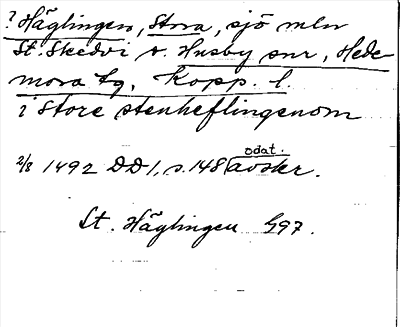 ? Häglingen, Stora, sjö mln
St. Skedvi o. Husby snr, Hede-
mora tg, Kopp. l.
i Store stenheflingenom
2/8 1492 DD1, s. 148 (odat. avskr.
St. Häglingen G97.